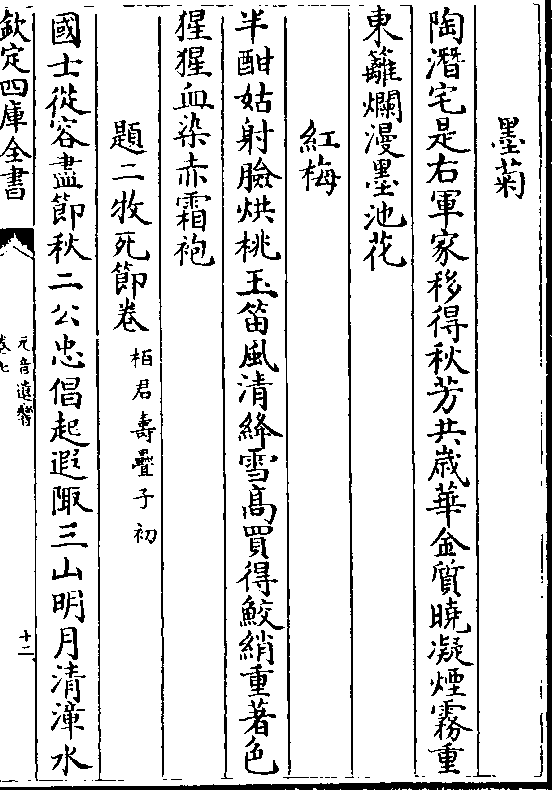 墨菊
陶潛宅是右軍家移得秋芳共歲華金質曉凝煙霧重
東籬爛漫墨池花
紅梅
半酣姑射臉烘桃玉笛風清絳雪高買得鮫綃重著色
猩猩血染赤霜袍
題二牧死節卷栢君壽疊子初
國士從容盡節秋二公忠倡起遐陬三山明月清漳水
欽定四庫全書
元音遺響
卷七
十二